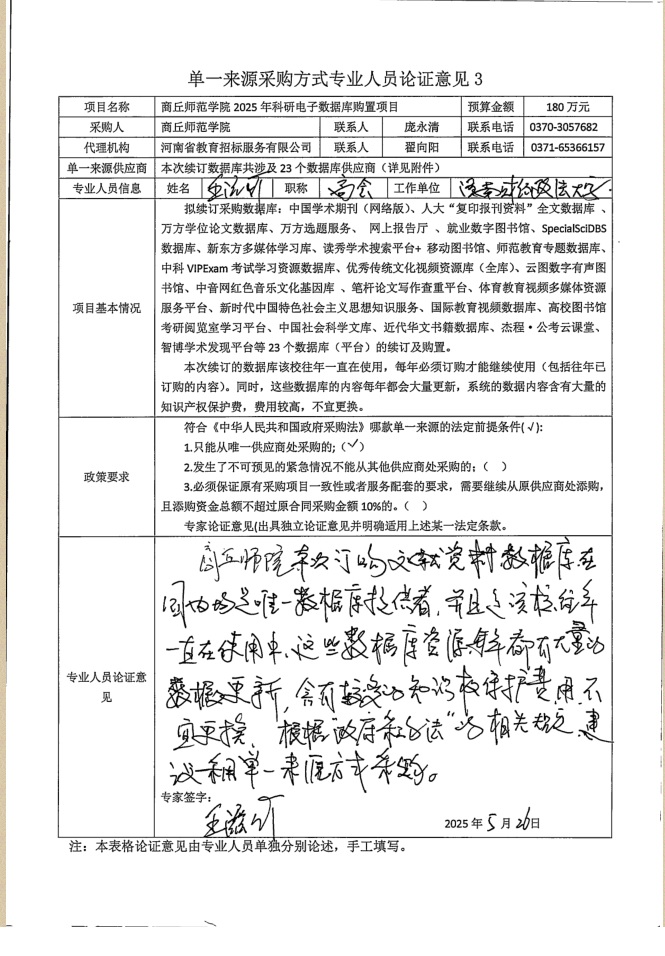 单一来源采购方式专业人员论证意见 3
项目名称 商丘师范学院 2025 年科研电子数据库购置项目 预算金额 180 万元
采购人 商丘师范学院 联系人 庞永清 联系电话 0370-3057682
代理机构 河南省教育招标服务有限公司 联系人 翟向阳 联系电话 0371-65366157
单一来源供应商 本次续订数据库共涉及 23 个数据库供应商（详见附件）
专业人员信息 姓名 职称 高会 工作单位 河南财经政法大学
拟续订采购数据库：中国学术期刊（网络版）、人大“复印报刊资料”全文数据库 、
万方学位论文数据库、万方选题服务、 网上报告厅 、就业数字图书馆、SpecialSciDBS
数据库、新东方多媒体学习库、读秀学术搜索平台+ 移动图书馆、师范教育专题数据库、
中科 VIPExam 考试学习资源数据库、优秀传统文化视频资源库（全库）、云图数字有声图
书馆、中音网红色音乐文化基因库 、笔杆论文写作查重平台、体育教育视频多媒体资源
项目基本情况 服务平台、新时代中国特色社会主义思想知识服务、国际教育视频数据库、高校图书馆
考研阅览室学习平台、中国社会科学文库、近代华文书籍数据库、杰程•公考云课堂、
智博学术发现平台等 23 个数据库（平台）的续订及购置。
本次续订的数据库该校往年一直在使用，每年必须订购才能继续使用（包括往年已
订购的内容）。同时，这些数据库的内容每年都会大量更新，系统的数据内容含有大量的
知识产权保护费，费用较高，不宜更换。
符合《中华人民共和国政府采购法》哪款单一来源的法定前提条件(√)：
1.只能从唯一供应商处采购的;（√）
政策要求 2.发生了不可预见的紧急情况不能从其他供应商处采购的；（ ）
3.必须保证原有采购项目一致性或者服务配套的要求，需要继续从原供应商处添购，
且添购资金总额不超过原合同采购金额 10%的。（ ）
专家论证意见(出具独立论证意见并明确适用上述某一法定条款。
商丘师院本次订购文献资料数据库在
国内均是唯一数据库提供者，并且是该校往年
一直在使用中，这些数据库资源每年都有大量的
专业人员论证意见 数据更新，含有较多的知识产权保护费用，不
宜更换，根据“政府采购法”的相关规定，建
议采用单一来源方式采购。
专家签字：
2025 年 5 月 26 日
注：本表格论证意见由专业人员单独分别论述，手工填写。